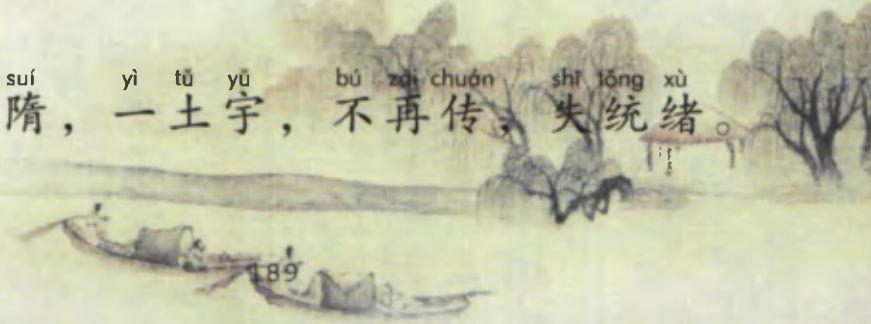 suí yì tǔ yǔ bú zài chuán shī tǒng xù
隋，一土宇，不再传，失统绪。
189